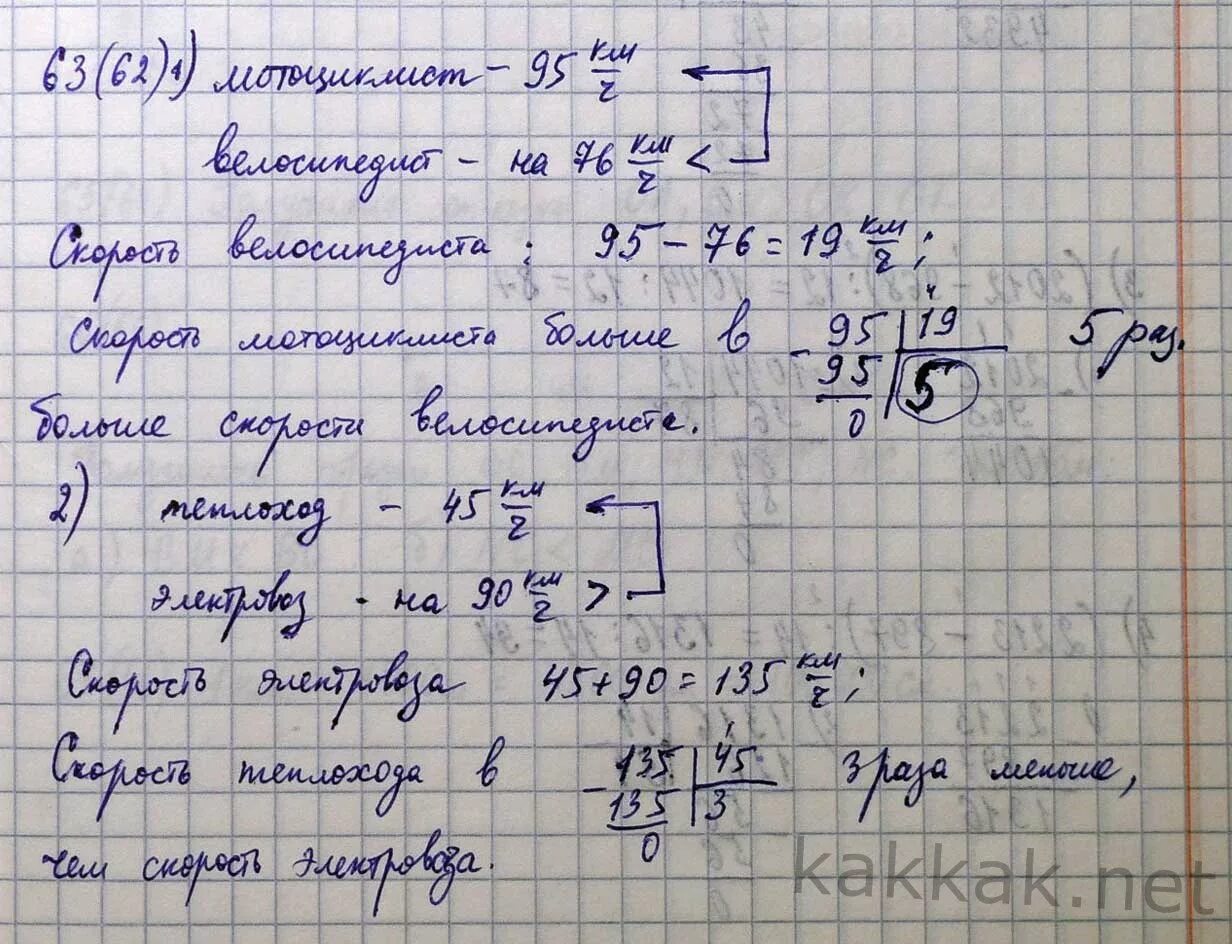 63(62) 1) мотоциклист – 95 км/ч
велосипедист – на 76 км/ч <
Скорость велосипедиста: 95 – 76 = 19 км/ч;
Скорость мотоциклиста больше в 95 | 19 5 раз.
– 95 5
0
больше скорости велосипедиста.
2) теплоход – 45 км/ч
электровоз - на 90 км/ч >
Скорость электровоза 45 + 90 = 135 км/ч;
Скорость теплохода в 135 | 45 3 раза меньше,
– 135 3
0
чем скорость электровоза.
kakkak.net